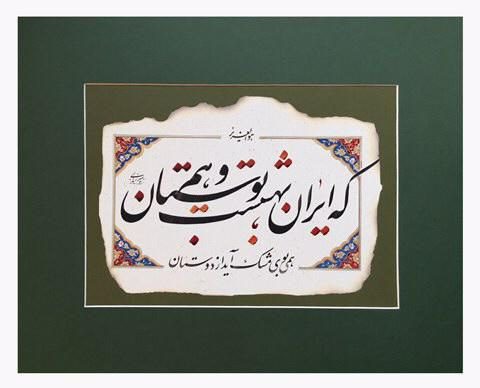 هوالعزیز
که ایران بهشتست و هم بوستان
همی بوی مشک آید از دوستان